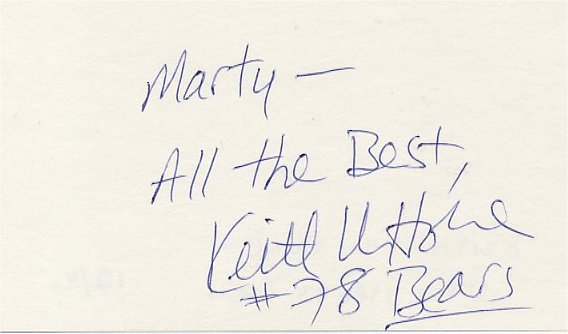 Marty —
All the Best,
Keith Van Horne
#78 Bears